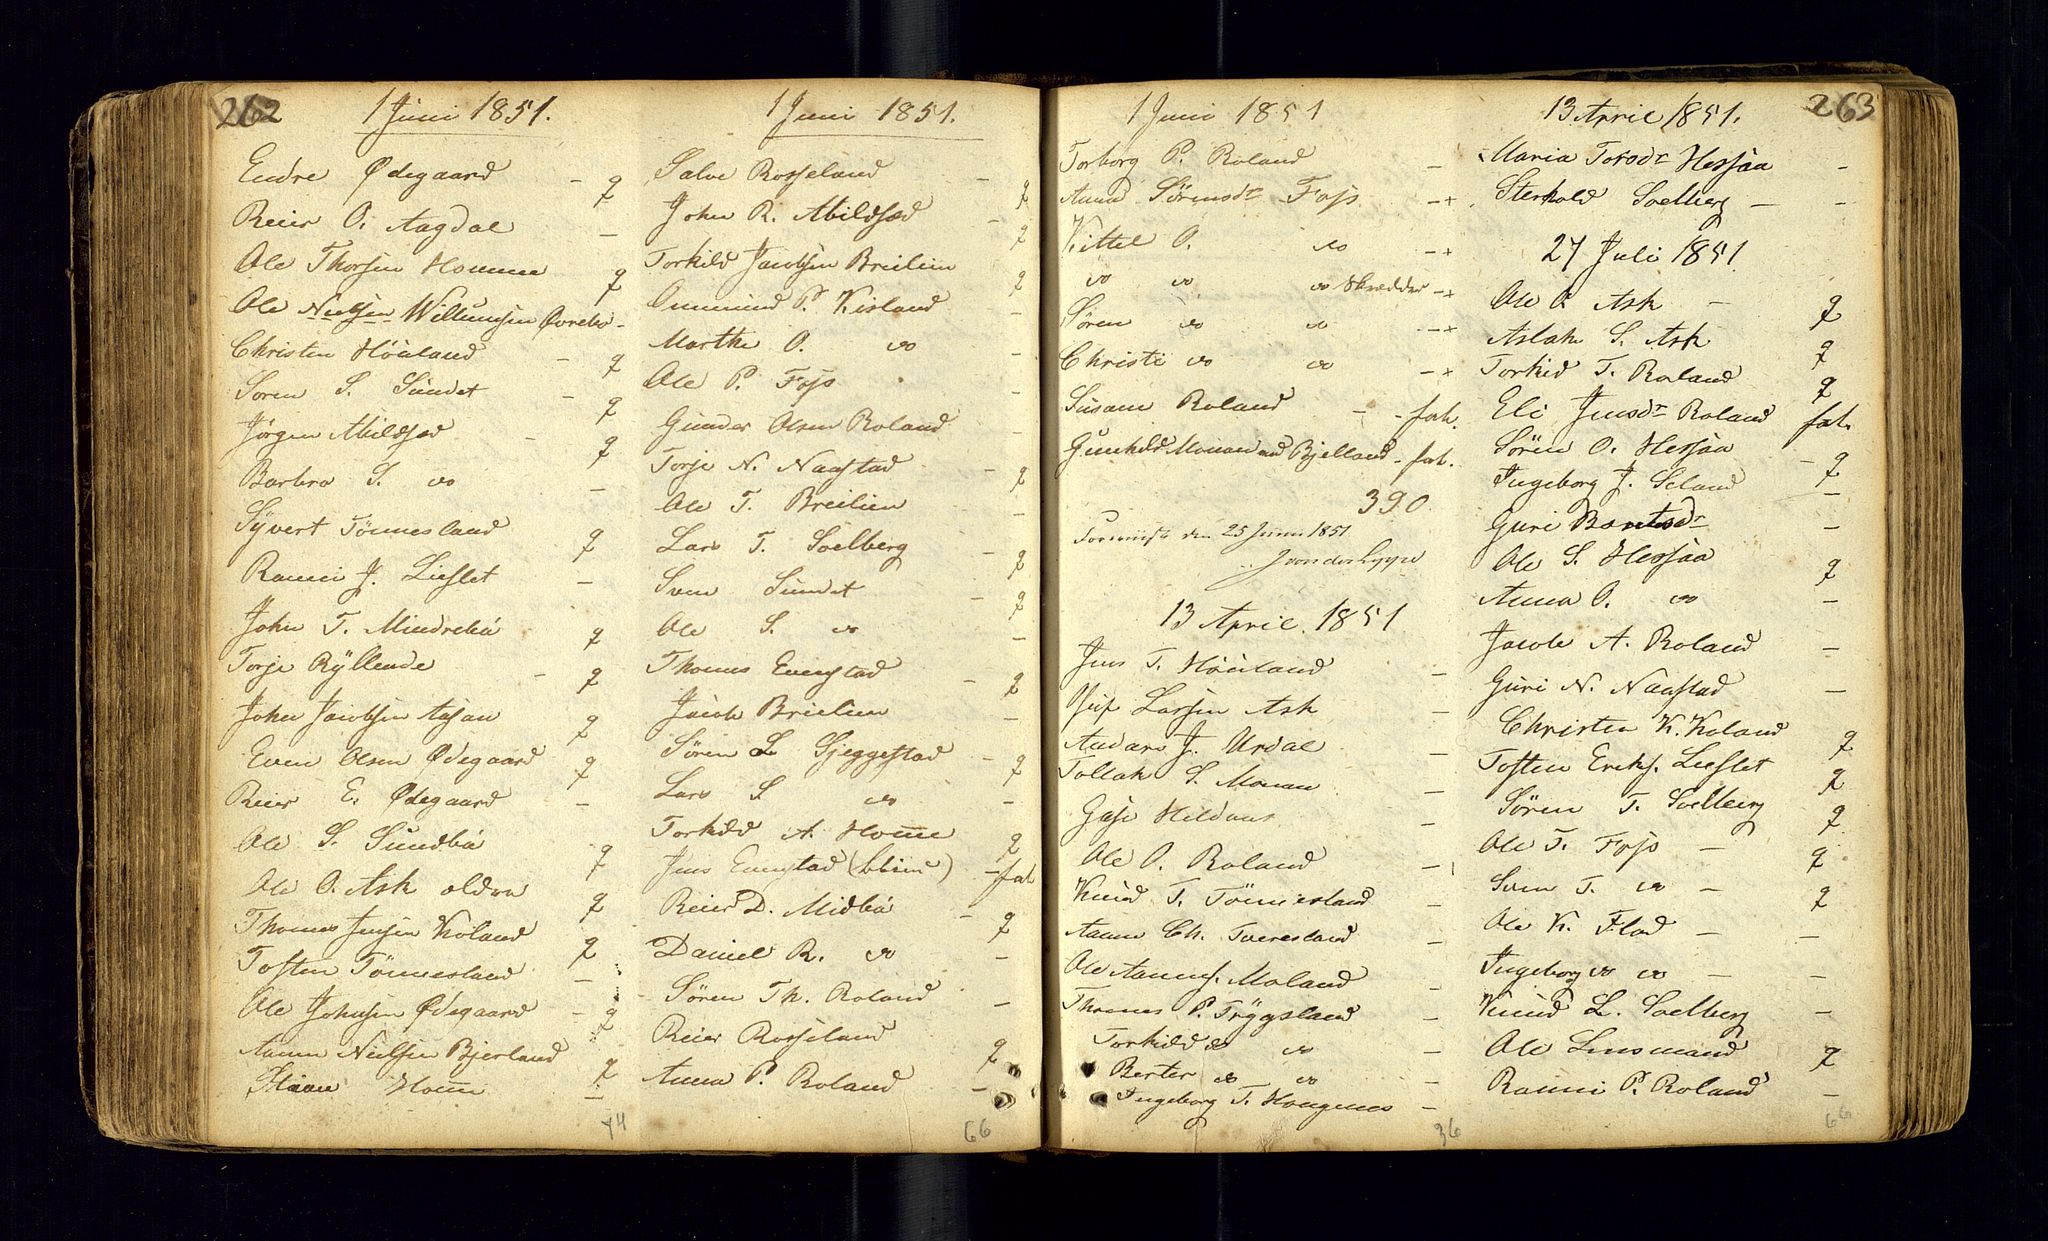 262
1 Juni 1851.
Endre Ødegaard - q
Reier O. Aagdal -
Ole Thorsen Homme q
Ole Nielsen Willumsen Øvrebø -
Christen Höiland - q
Soren S. Sundet - q
Jörgen Abildsæd - q
Barbro S. do -
Syvert Tönnesland q
Ranni J. Lieslet -
John T. Mindrebö q
Torje Ryllende - q
John Jacobsen Aasan q
Even Olsen Ødegaard q
Reier E. Ødegaard -
Ole S. Sundbö q
Ole O. Ask eldre q
Thomas Jensen Koland q
Tosten Tönnesland -
Ole Johnsen Ødegaard - q
Aanen Nielsen Bjerland q
Homm -
74
1 Juni 1851.
Salve Rosseland - q
John R. Abildsæd - q
Torkild Jacobsen Breilien q
Ommund P. Kisland -
Marthe O. do -
Ole P. Foss -
Gunder Olsen Roland -
Torje N. Naastad - q
Ole T. Breilien -
Lars T. Solberg - q
Sven Sundet - q
Ole S. do -
Thomas Evenstad - q
Jacob Breilien -
Sören L Gjeggestad - q
Lars S do -
Torkild A. Homme q
Jens Evenstad ( ) - fat.
Reier D. Midbö - q
Daniel R. do -
Sören Th. Roland -
Reier Rosseland q
Anna P. Roland -
66
1 Juni 1851
Torborg P. Roland -
Anna Sörensdr Foss -+
Kittel O. do -+
do do do Skrædder -+
Sören do do -+
Christi do do -+
Susann Roland - - fat.
Gunhild Monan ved Bjelland - fat.
390.
den 25 Juni 1851.
J von der Lippe
13 April 1851
Jens T. Höiland -
Larsen Ask -
J. Urdal -
Tollak S. Monan -
-
Ole O. Roland -
Knud T. Tönnesland -
Aanen Ch. Tveresland -
Ole Aanens. Moland -
Thomas P. Tryggsland -
Torkild do do -
Berter do do -
Ingeborg T. -
36
13 April 1851.
263
Maria Torsdr Hessaa -
Sterkold Solberg - -
27 Juli 1851.
Ole O. Ask - q
Aslak S. Ask q
Torkild T. Roland q
Eli Jensdr Roland fat.
Sören O. Hessaa - q
Ingeborg J. Seland -
Guri Berntsdr -
Ole S. Hessaa q
Anna O. do -
Jacob A. Roland -
Guri N. Naastad -
Christen K. Koland q
Tosten Eriks. Lieslet q
Sören T. Solberg q
Ole T. Foss - q
Sven T. do - q
Ole K. Flad - -
Ingeborg do do - -
Knud L. Solberg -
Ole Linsmand q
Ranni P. Roland -
66